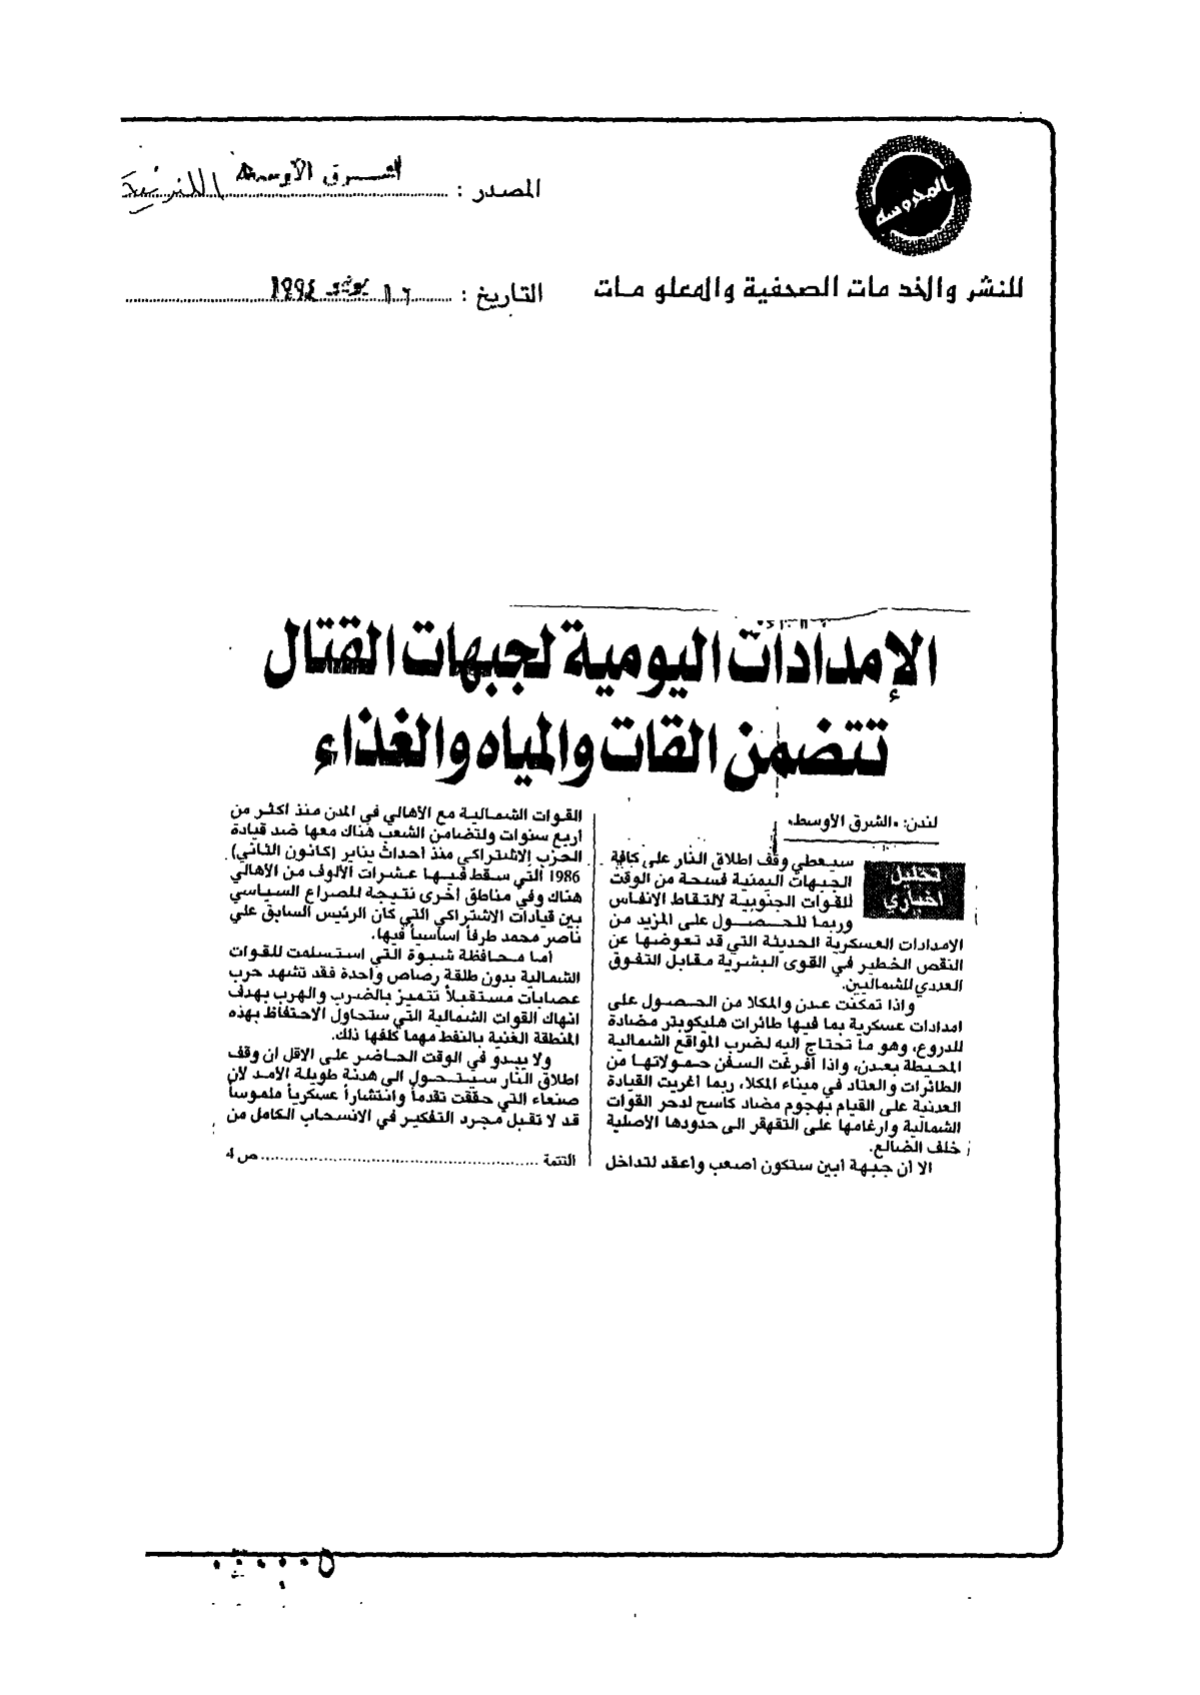 المحروسة
المصدر : الشرق الأوسط اللندنية
للنشر والخدمات الصحفية والمعلومات
التاريخ : ١٦ يونيو ١٩٩٤
الإمدادات اليومية لجبهات القتال
تتضمن القات والمياه والغذاء
لندن: «الشرق الأوسط»
تحليل
اخباري
سيعطي وقف اطلاق النار على كافة
الجبهات اليمنية فسحة من الوقت
للقوات الجنوبية لالتقاط الانفاس
وربما للحصول على المزيد من
الامدادات العسكرية الحديثة التي قد تعوضها عن
النقص الخطير في القوى البشرية مقابل التفوق
العددي للشماليين.
واذا تمكنت عدن والمكلا من الحصول على
امدادات عسكرية بما فيها طائرات هليكوبتر مضادة
للدروع، وهو ما تحتاج اليه لضرب المواقع الشمالية
المحيطة بعدن، واذا افرغت السفن حمولاتها من
الطائرات والعتاد في ميناء المكلا، ربما اغريت القيادة
العدنية على القيام بهجوم مضاد كاسح لدحر القوات
الشمالية وارغامها على التقهقر الى حدودها الأصلية
خلف الضالع.
الا ان جبهة ابين ستكون اصعب واعقد لتداخل
القوات الشمالية مع الأهالي في المدن منذ اكثر من
أربع سنوات ولتضامن الشعب هناك معها ضد قيادة
الحزب الاشتراكي منذ احداث يناير (كانون الثاني)
1986 التي سقط فيها عشرات الألوف من الأهالي
هناك وفي مناطق أخرى نتيجة للصراع السياسي
بين قيادات الاشتراكي التي كان الرئيس السابق علي
ناصر محمد طرفاً اساسياً فيها.
أما محافظة شبوة التي استسلمت للقوات
الشمالية بدون طلقة رصاص واحدة فقد تشهد حرب
عصابات مستقبلاً تتميز بالضرب والهرب بهدف
انهاك القوات الشمالية التي ستحاول الاحتفاظ بهذه
المنطقة الغنية بالنفط مهما كلفها ذلك.
ولا يبدو في الوقت الحاضر على الاقل ان وقف
اطلاق النار سيتحول الى هدنة طويلة الأمد لأن
صنعاء التي حققت تقدماً وانتشاراً عسكرياً ملموساً
قد لا تقبل مجرد التفكير في الانسحاب الكامل من
التتمة ........ ص 4